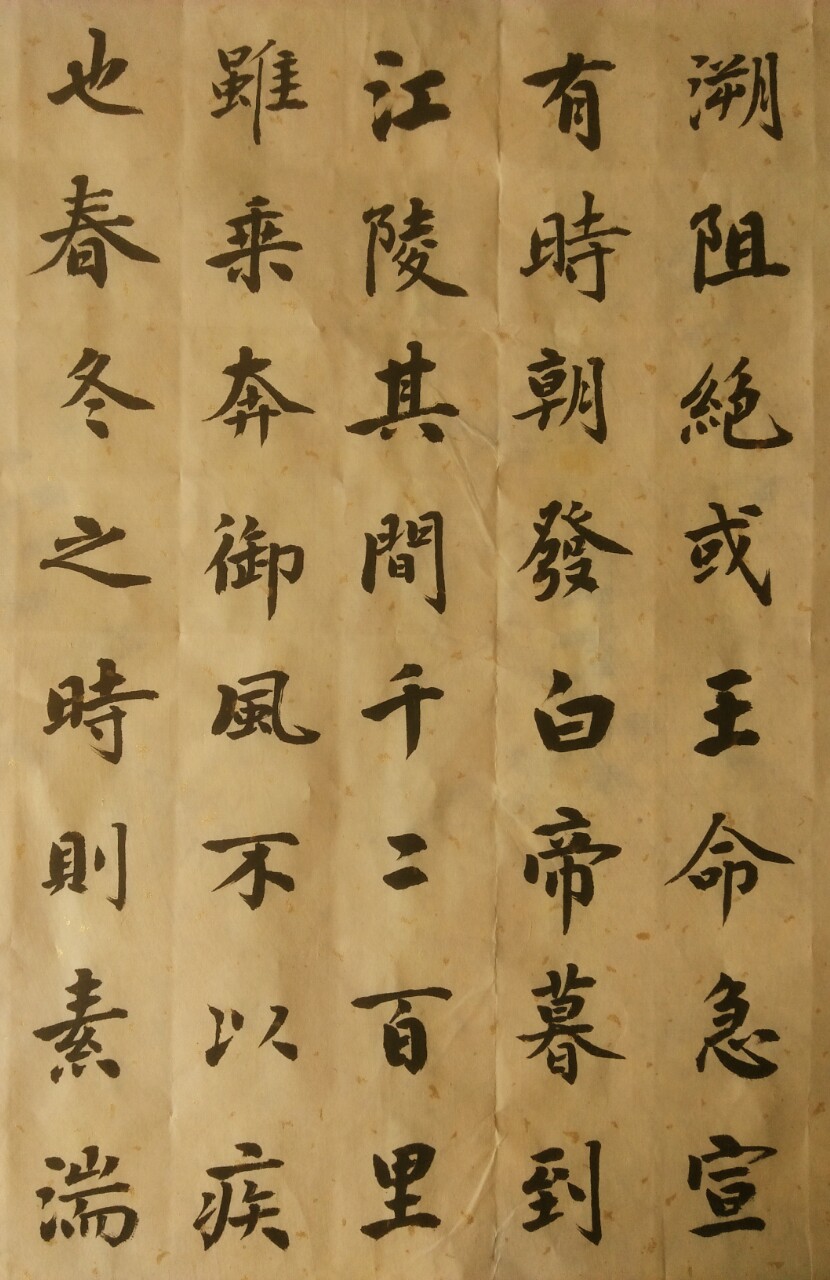 溯阻絶或王命急宣
有時朝發白帝暮到
江陵其間千二百里
雖乗奔御風不以疾
也春冬之時則素湍